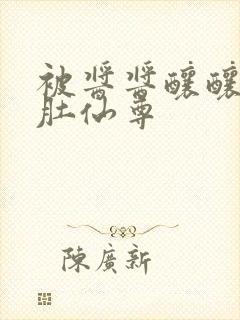 被醬醬釀釀
肚仙尊
陳廣新